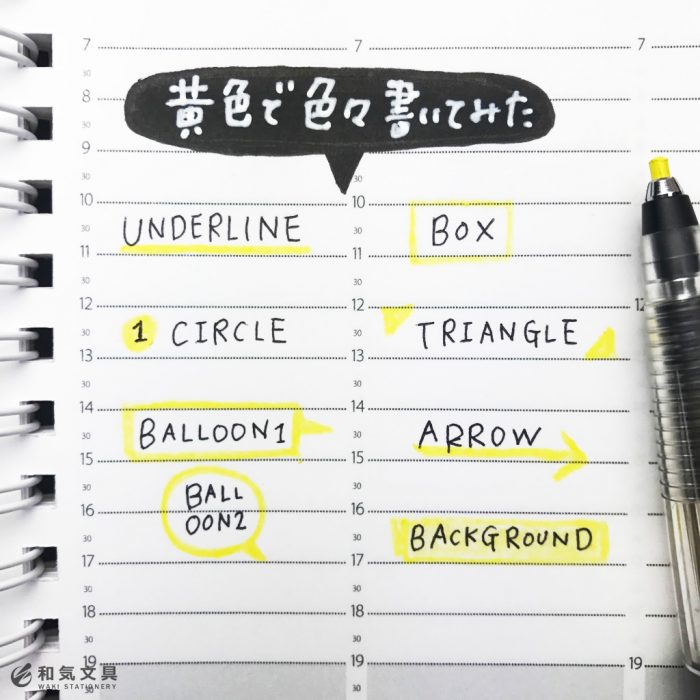 7 7 7
30 30
8
黄色で色々書いてみた
30 30
9
30
10 10
UNDERLINE BOX
11 11
30 30
12 12 12
1 CIRCLE 30 TRIANGLE
30
13 13
30 30
14 14
BALLOON1 ARROW
30 30
15 15
30 30
BALL
OON2
16 16
30 30 BACKGROUND
17 17
30 30
18 18
30 30
19 19 19
和気文具
WAKI STATIONERY